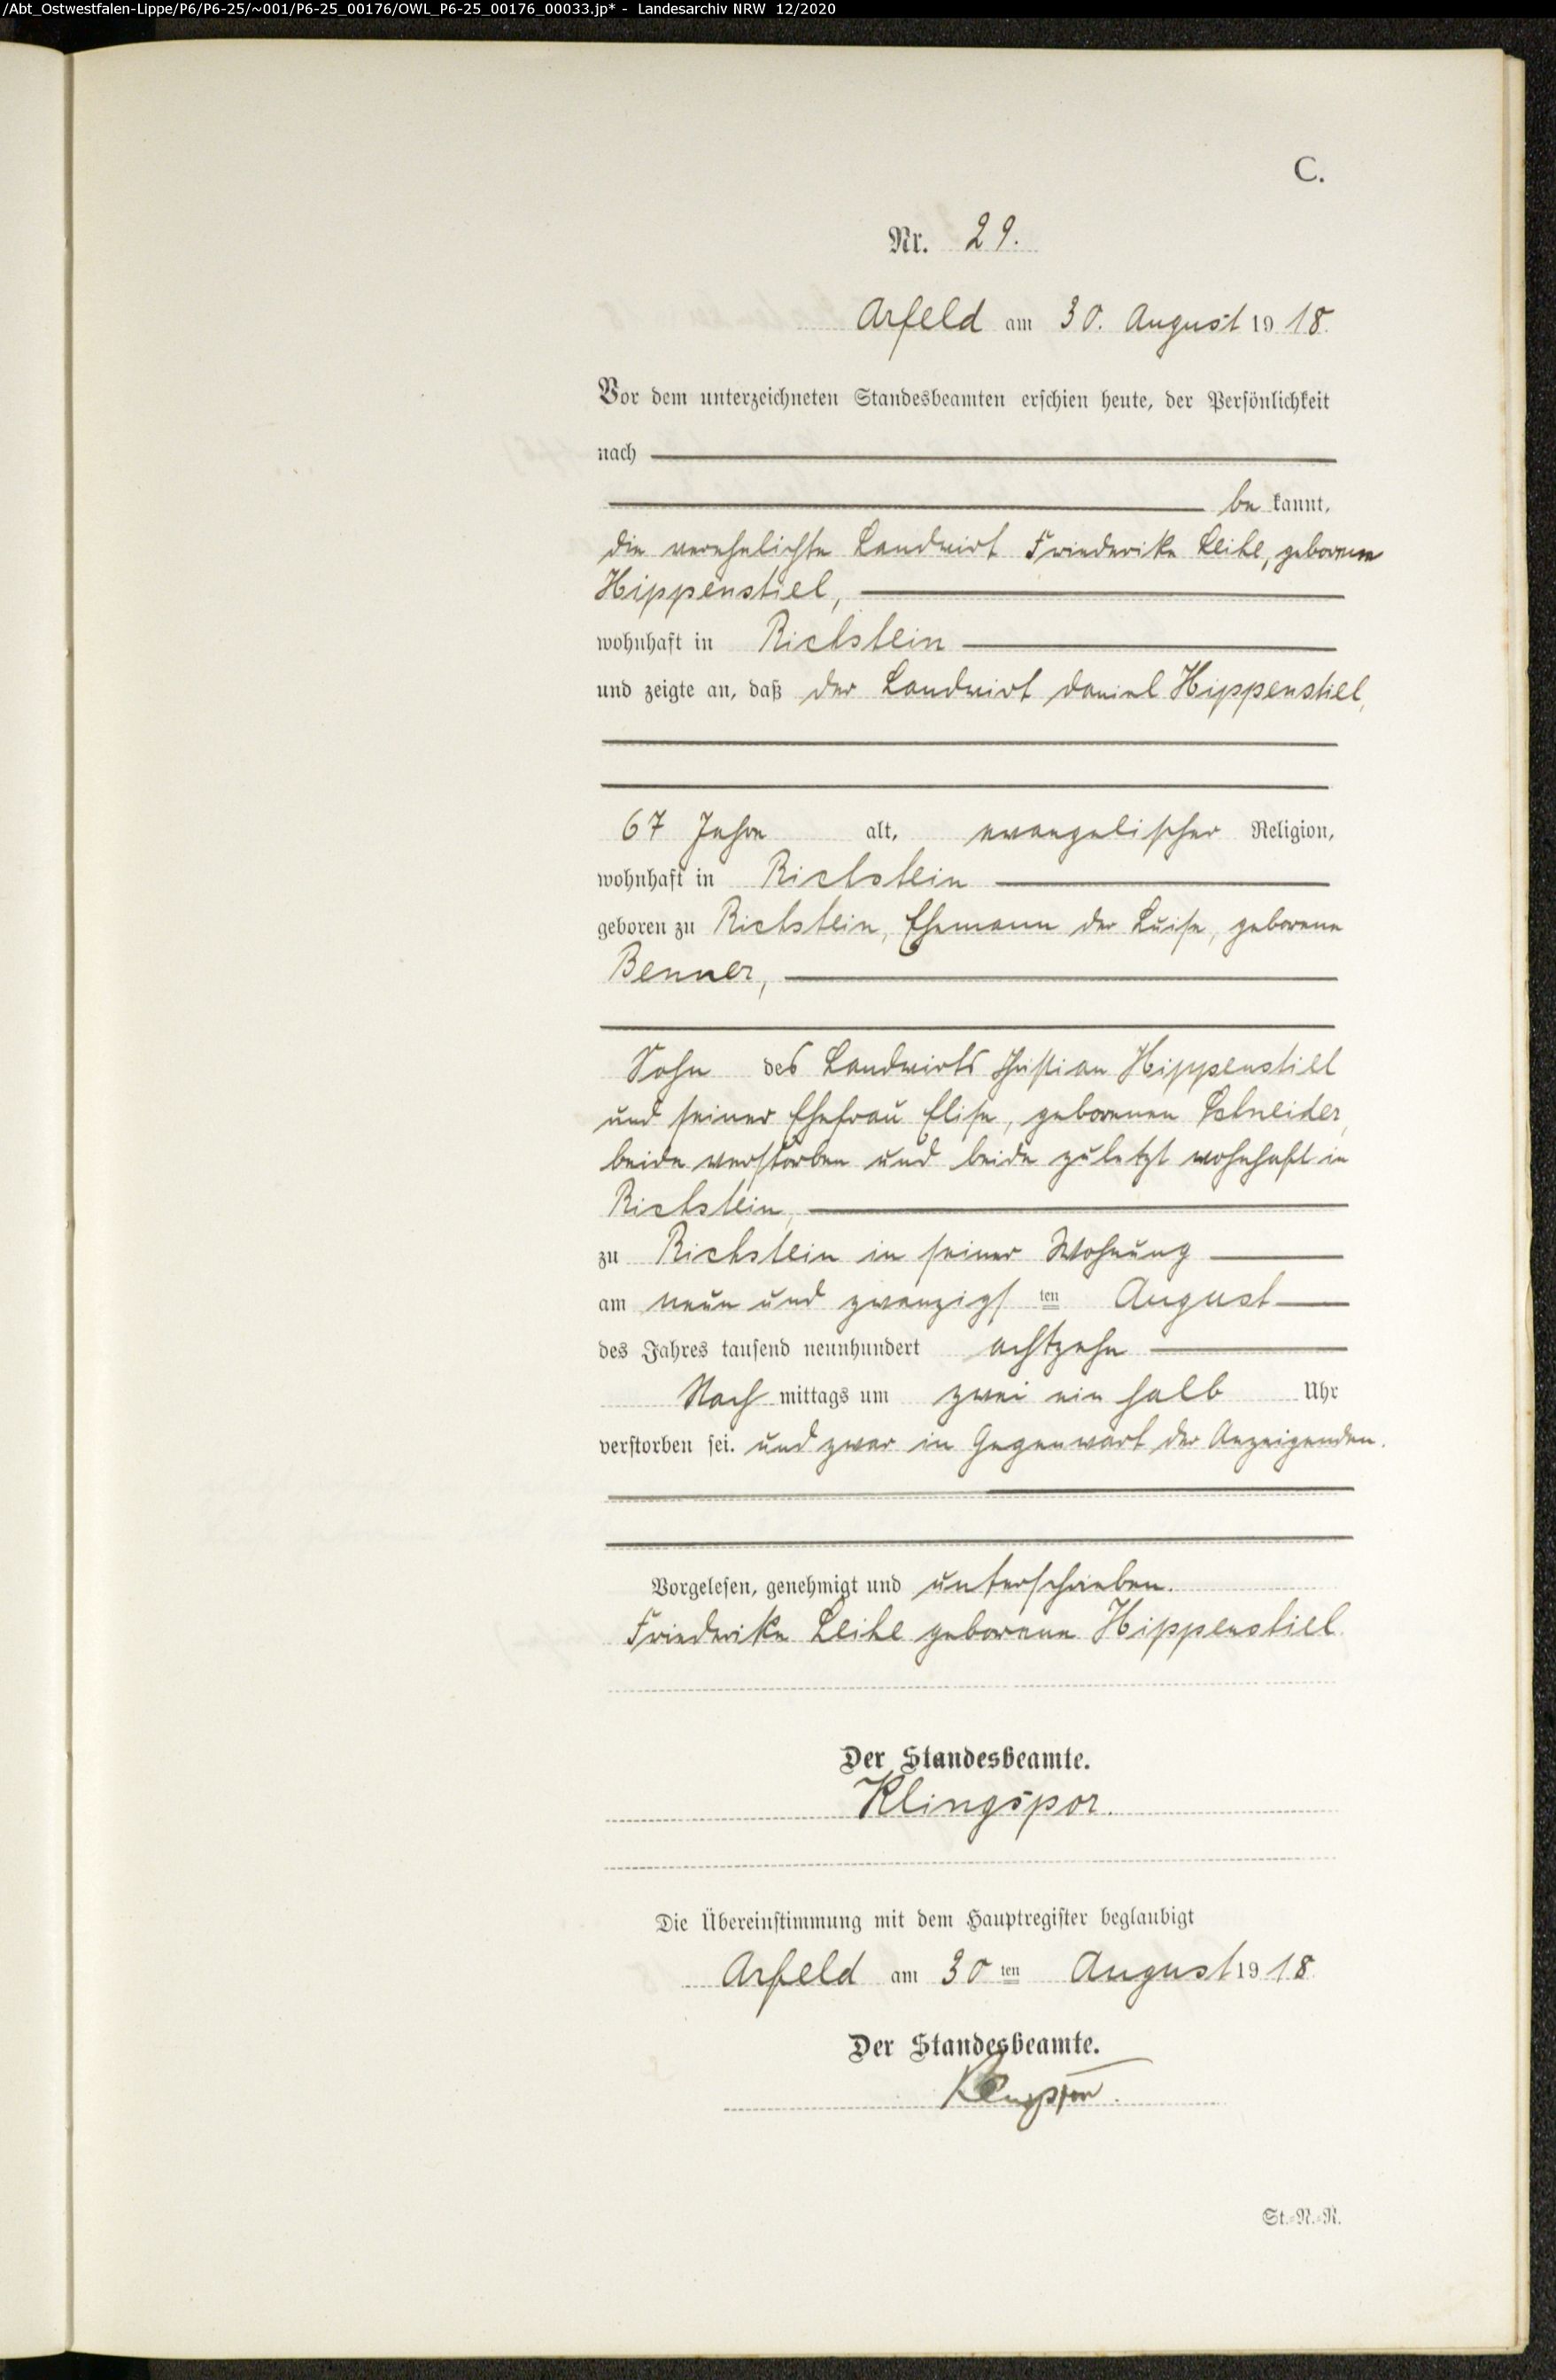 /Abt_Ostwestfalen-Lippe/P6/P6-25/~001/P6-25_00176/OWL_P6-25_00176_00033.jp* - Landesarchiv NRW 12/2020
C.
Nr. 29.
Arfeld am 30. August 1918.
Vor dem unterzeichneten Standesbeamten erschien heute, der Persönlichkeit
nach
be kannt,
die verehelichte Landwirt Friederike Leihe, geborene
Hippenstiel,
wohnhaft in Richstein
und zeigte an, daß der Landwirt Daniel Hippenstiel,
67 Jahre alt, evangelischer Religion,
wohnhaft in Richstein
geboren zu Richstein, Ehemann der Luise, geborene
Benner,
Sohn des Landwirts Christian Hippenstiel
und seiner Ehefrau Elise, geborenen Schneider,
beide verstorben und beide zuletzt wohnhaft in
Richstein,
zu Richstein in seiner Wohnung
am neun und zwanzigs ten August
des Jahres tausend neunhundert achtzehn
Nach mittags um zwei ein halb Uhr
verstorben sei. und zwar in Gegenwart der Anzeigenden.
Vorgelesen, genehmigt und unterschrieben.
Friederike Leihe geborene Hippenstiel
Der Standesbeamte.
Klingspor.
Die Übereinstimmung mit dem Hauptregister beglaubigt
Arfeld am 30 ten August 1918
Der Standesbeamte.
Klingspor.
St.-N.-R.